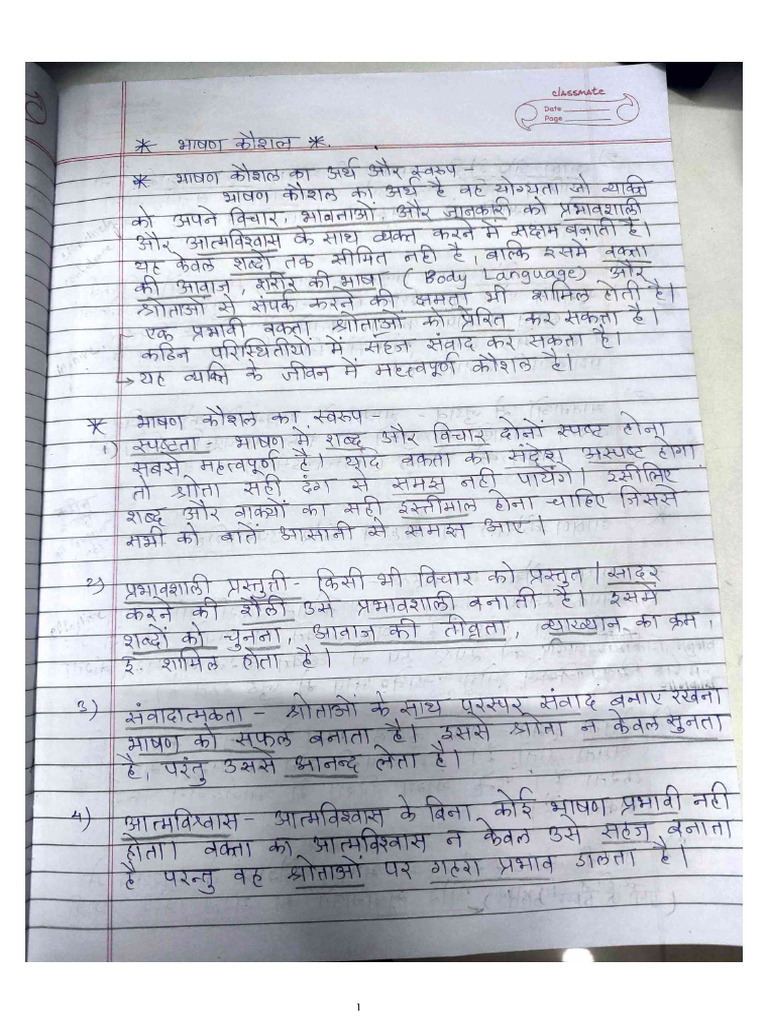 classmate
Date
Page
* भाषण कौशल *.
* भाषण कौशल का अर्थ और स्वरूप -
भाषण कौशल का अर्थ है वह योग्यता जो व्यक्ति
को अपने विचार, भावनाओं, और जानकारी को प्रभावशाली
और आत्मविश्वास के साथ व्यक्त करने में सक्षम बनाती है।
यह केवल शब्दों तक सीमित नही है, बल्कि इसमें वक्ता
की आवाज, शरीर की भाषा (Body Language) और
श्रोताओं से संपर्क करने की क्षमता भी शामिल होती है।
- एक प्रभावी वक्ता श्रोताओं को प्रेरित कर सकता है।
कठिन परिस्थितीयों में सहज संवाद कर सकता है।
→ यह व्यक्ति के जीवन में महत्वपूर्ण कौशल है।
* भाषण कौशल का स्वरूप -
1) स्पष्टता - भाषण में शब्द और विचार दोनों स्पष्ट होना
सबसे महत्वपूर्ण है। यदि वक्ता का संदेश अस्पष्ट होगा
तो श्रोता सही ढंग से समझ नही पायेंगे। इसीलिए
शब्द और वाक्यों का सही इस्तीमाल होना चाहिए जिससे
सभी को बातें आसानी से समझ आए।
2) प्रभावशाली प्रस्तुत्ती - किसी भी विचार को प्रस्तुत / सादर
करने की शैली उसे प्रभावशाली बनाती है। इसमें
शब्दों को चुनना, आवाज की तीव्रता, व्याख्यान का क्रम,
इ. शामिल होता है।
3) संवादात्मकता - श्रोताओं के साथ परस्पर संवाद बनाए रखना
भाषण को सफल बनाता है। इससे श्रोता न केवल सुनता
है, परंतु उससे आनन्द लेता है।
4) आत्मविश्वास - आत्मविश्वास के बिना कोई भाषण प्रभावी नही
होता। वक्ता का आत्मविश्वास न केवल उसे सहज बनाता
है परन्तु वह श्रोताओं पर गहरा प्रभाव डालता है।
1